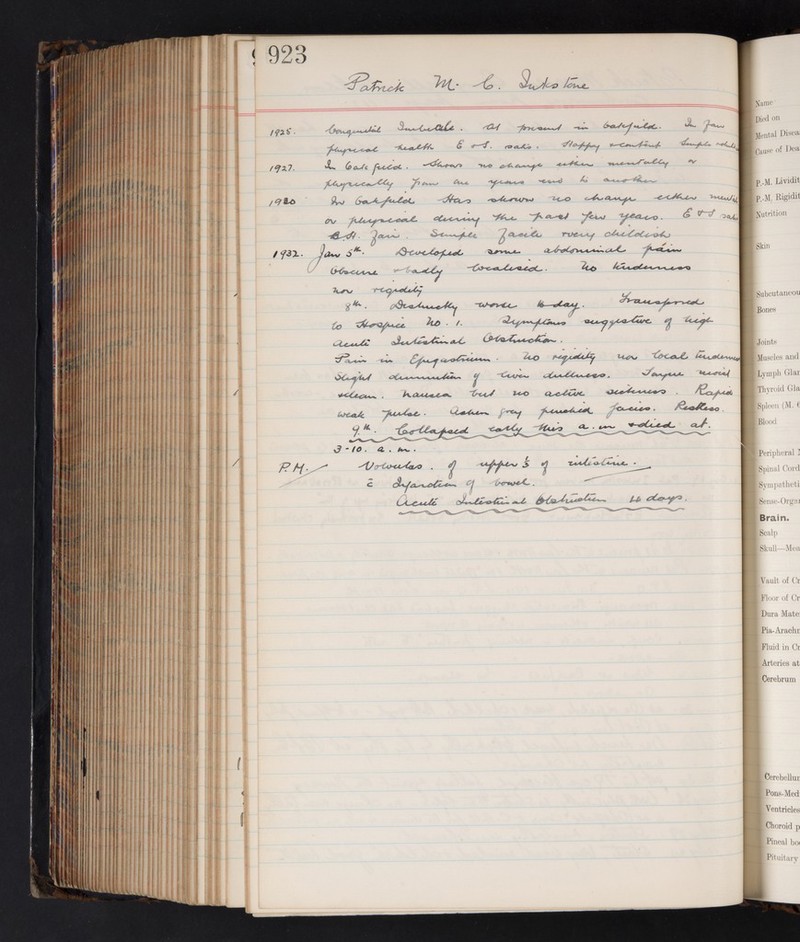 923
Patrick M. C. Inkstone
1925. Congenital Imbecile. At present in Oakfield. In fair
physical health. E & S. satis. Happy & content. Simple & childish
1927. In Oakfield. Shows no change either mentally or
physically from one years end to another
1930 In Oakfield Has shown no change either mental
or physical during the past few years. E & S sat
B.H. fair. Simple facile & very childish
1932. Jan 5th. Developed some abdominal pain
obscure & badly localised. No tenderness
nor rigidity
8th. Distinctly worse to-day. Transferred
to Hospice No. 1. Symptoms suggestive of high
acute Intestinal Obstruction.
Pain in Epigastrium. No rigidity nor local tenderness
Slight diminution of liver dullness. Tongue moist
& clean. Nausea but no active sickness. Rapid
weak pulse. Ashen grey pinched facies. Restless
9th. Collapsed early this a.m & died at
3-10. a.m.
P.M. Volvulus. of upper ⅓ of intestine.
c̄ Infarction of bowel.
Acute Intestinal Obstruction days.
Name
Died on
Mental Disea
Cause of Dea
P.-M. Lividit
P.-M. Rigidit
Nutrition
Skin
Subcutaneou
Bones
Joints
Muscles and
Lymph Glan
Thyroid Gla
Spleen (M. 
Blood
Peripheral
Spinal Cord
Sympatheti
Sense-Organ
Brain.
Scalp
Skull—Mea
Vault of Cr
Floor of Cr
Dura Mate
Pia-Arachn
Fluid in Cr
Arteries at
Cerebrum
Cerebellum
Pons-Med
Ventricles
Choroid p
Pineal bo
Pituitary